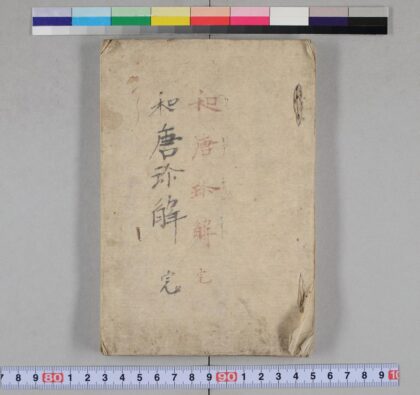 和唐珍解 完
和唐珍解 完
7 8 9 80 1 2 3 4 5 6 7 8 9 90 1 2 3 4 5 6 7 8 9 10